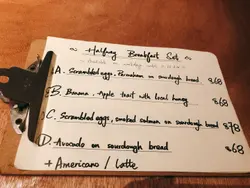 ~ Halfway Breakfast Set ~
A. Scrambled eggs, Parmahan on sourdough bread $68
B. Banana, Apple toast with local honey $68
C. Scrambled eggs, smoked salmon on sourdough bread $78
D. Avocado on sourdough bread $68
+ Americano / Latte